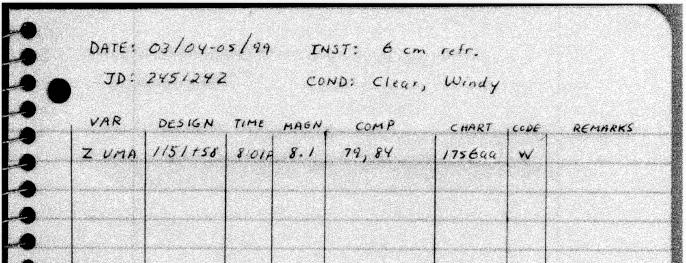 DATE: 03/04-05/99 INST: 6 cm refr.
JD: 2451242 COND: Clear, Windy
VAR DESIGN TIME MAGN COMP CHART CODE REMARKS
Z UMA 1151+58 8:01P 8.1 79, 84 1756aa W